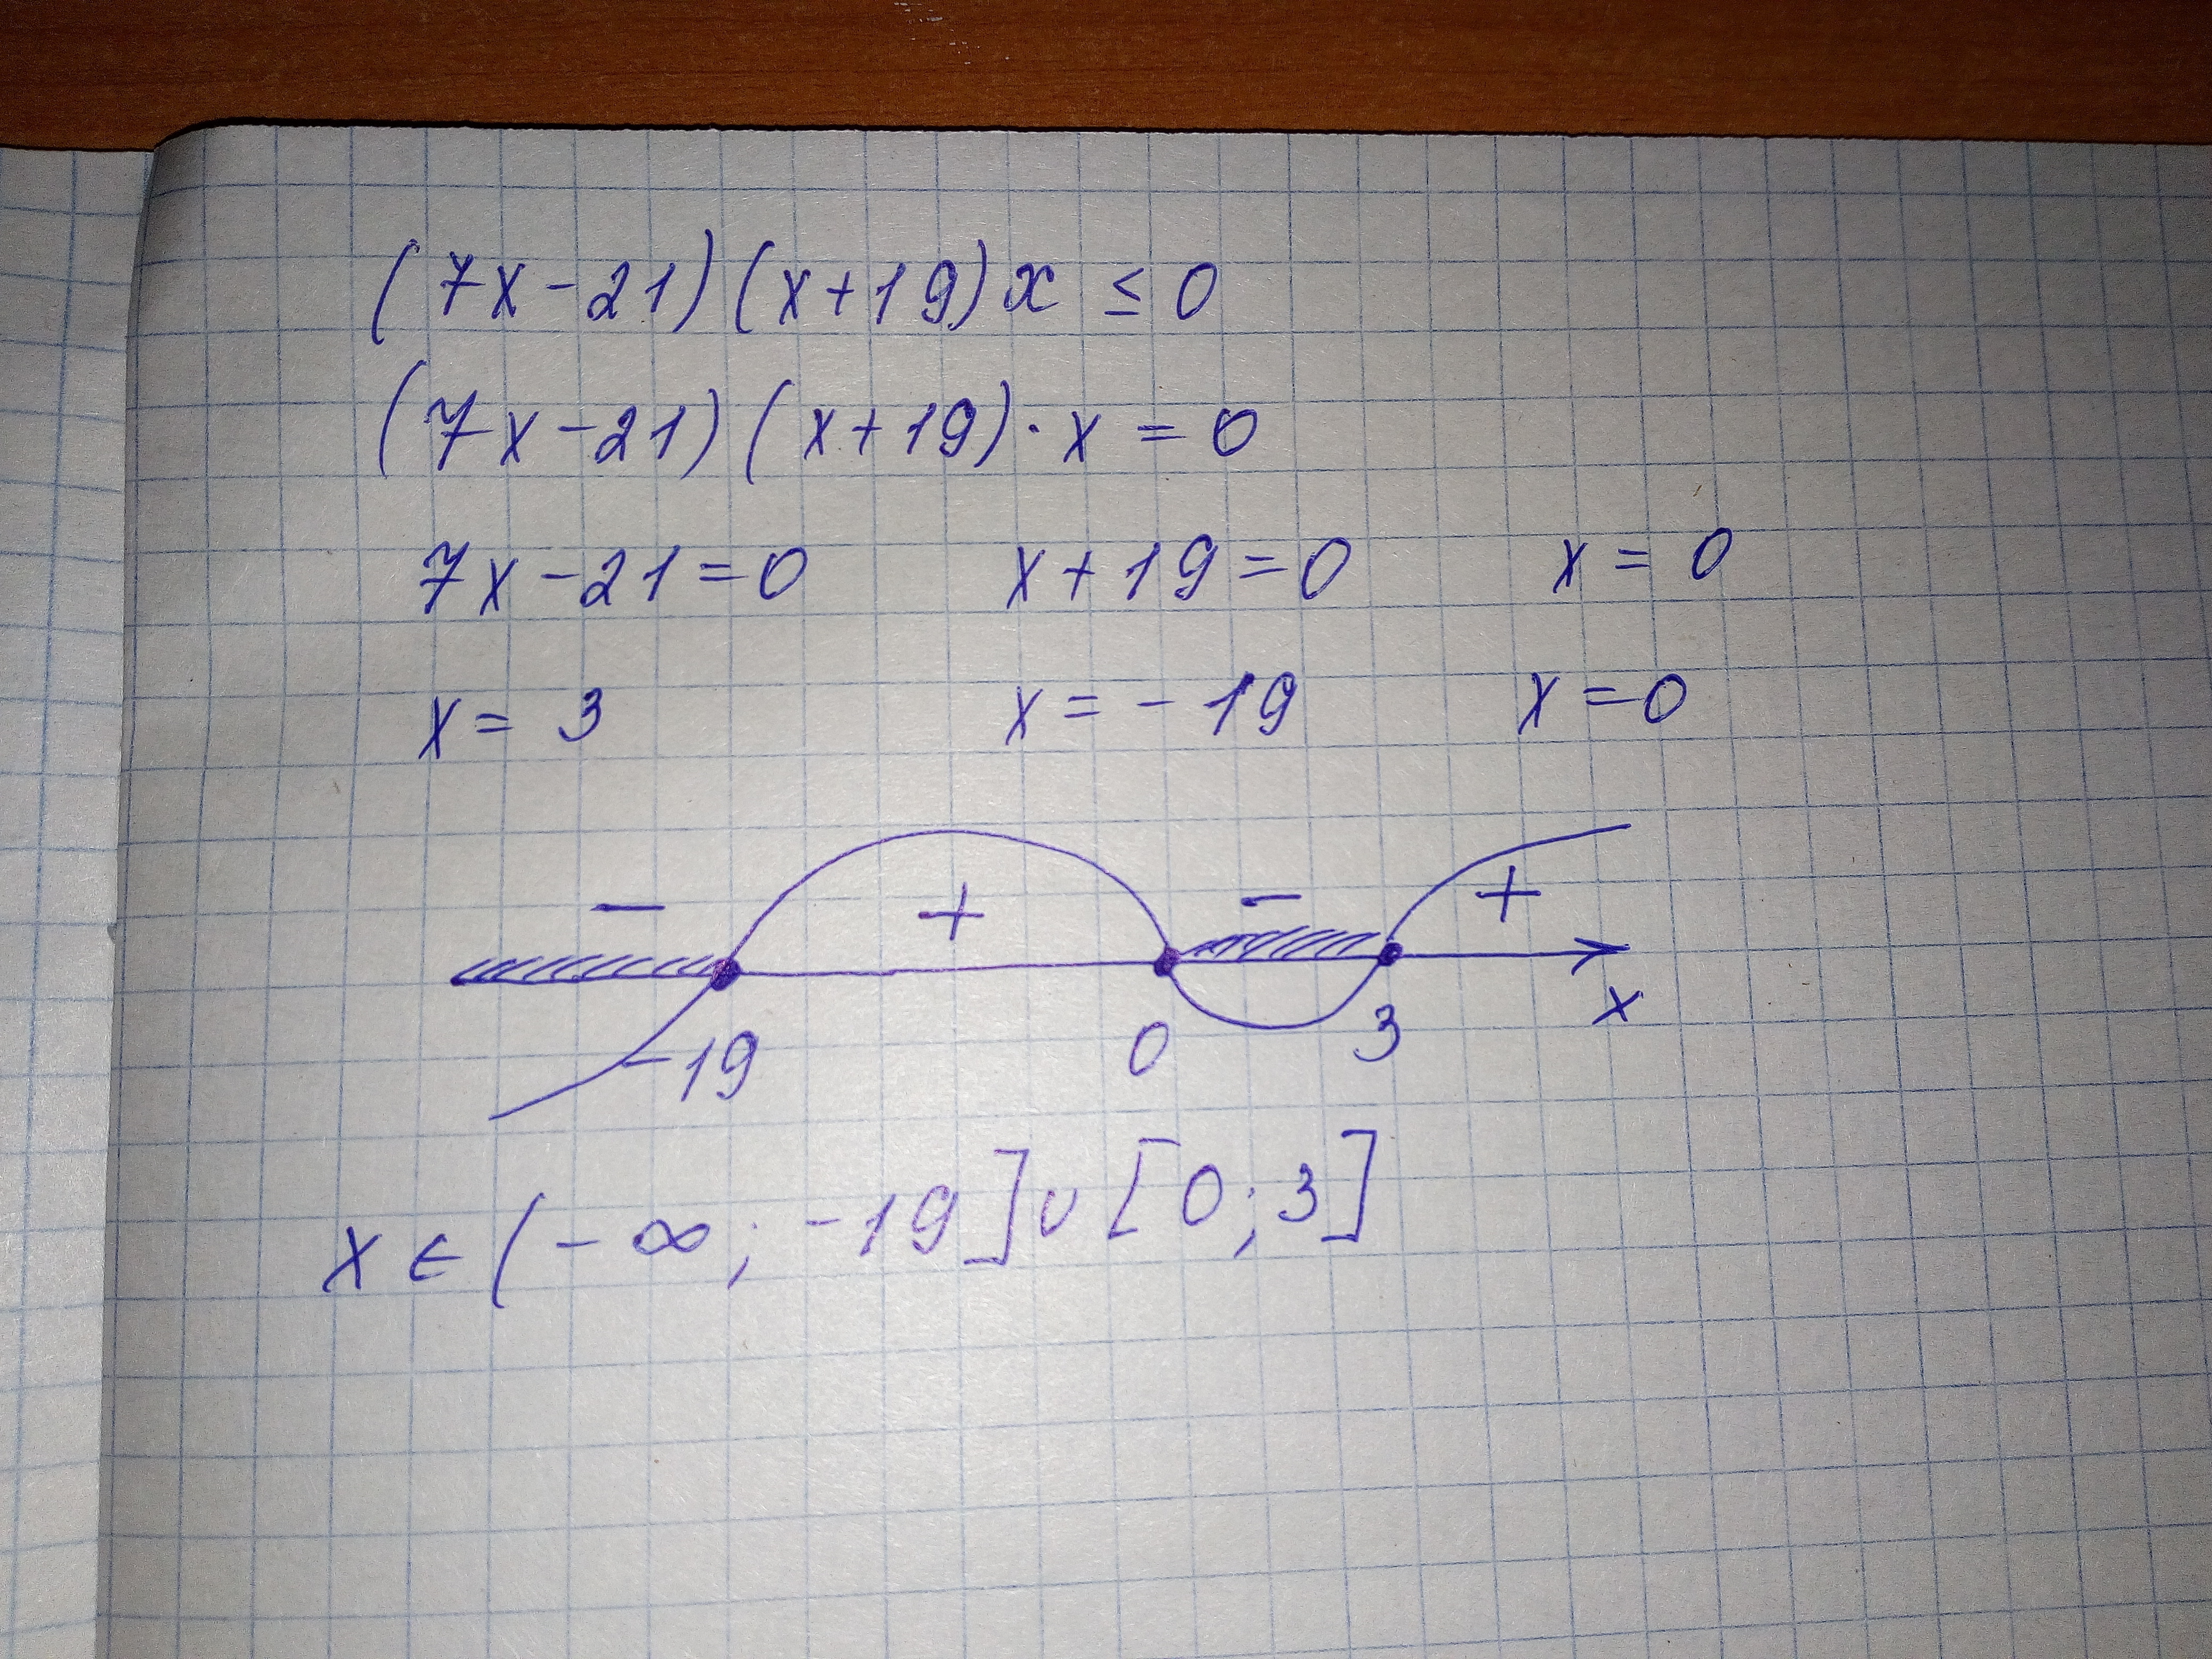 (7x-21)(x+19)x ≤ 0
(7x-21)(x+19)·x = 0
7x-21=0 x+19=0 x=0
x= 3 x=-19 x=0
- + - +
-19 0 3 x
x ∈ (-∞; -19] ∪ [0; 3]